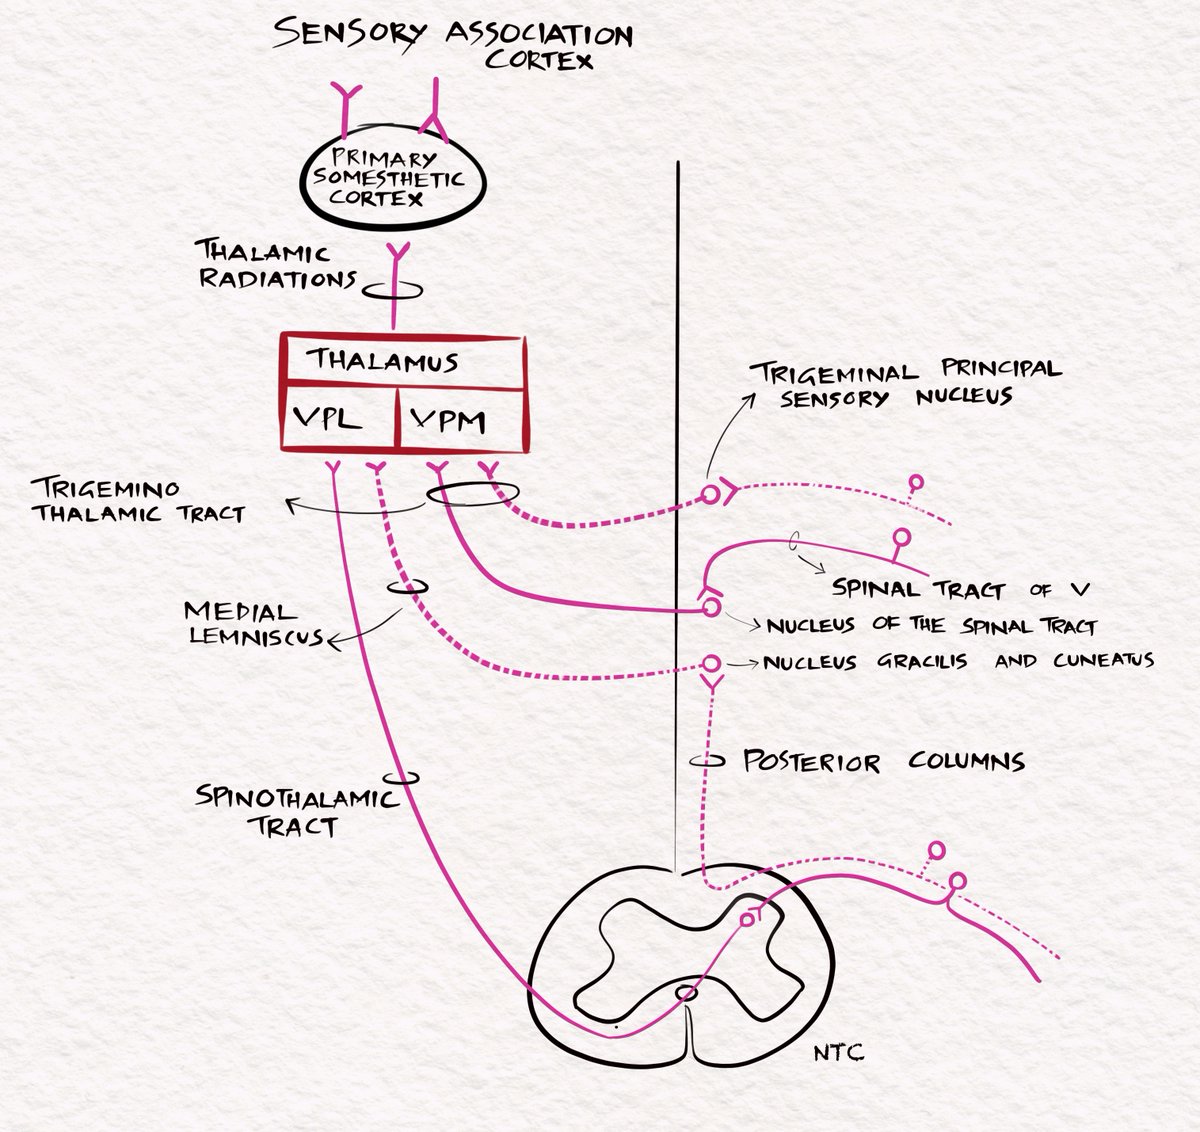 SENSORY ASSOCIATION
CORTEX
PRIMARY
SOMESTHETIC
CORTEX
THALAMIC
RADIATIONS
THALAMUS
VPL
VPM
TRIGEMINAL PRINCIPAL
SENSORY NUCLEUS
TRIGEMINO
THALAMIC TRACT
SPINAL TRACT OF V
MEDIAL
LEMNISCUS
NUCLEUS OF THE SPINAL TRACT
NUCLEUS GRACILIS AND CUNEATUS
POSTERIOR COLUMNS
SPINOTHALAMIC
TRACT
NTC